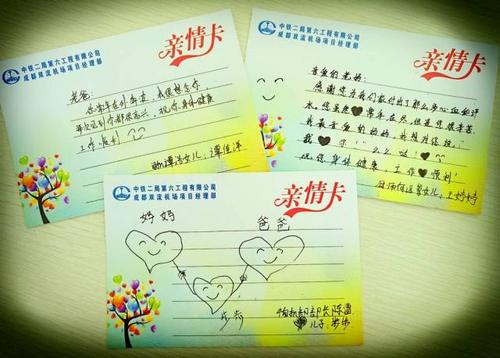 中铁二局第六工程有限公司
成都双流机场项目经理部
亲情卡
老爸
您常年在外奔波 我很想念你
每次见到你都很高兴,祝你身体健康
工作顺利
女儿:谭佳洋
中铁二局第六工程有限公司
成都双流机场项目经理部
亲情卡
亲爱的老妈:
感谢您为我们家付出了那么多心血和汗
水。您虽然常年在外但是您很辛苦
我最亲爱的妈妈,我想对您说:
我♥你!么么哒!♥
祝您身体健康 工作顺利!
女儿:王婷婷
中铁二局第六工程有限公司
成都双流机场项目经理部
亲情卡
妈妈 爸爸
步步
部长陈雷
儿子:步步